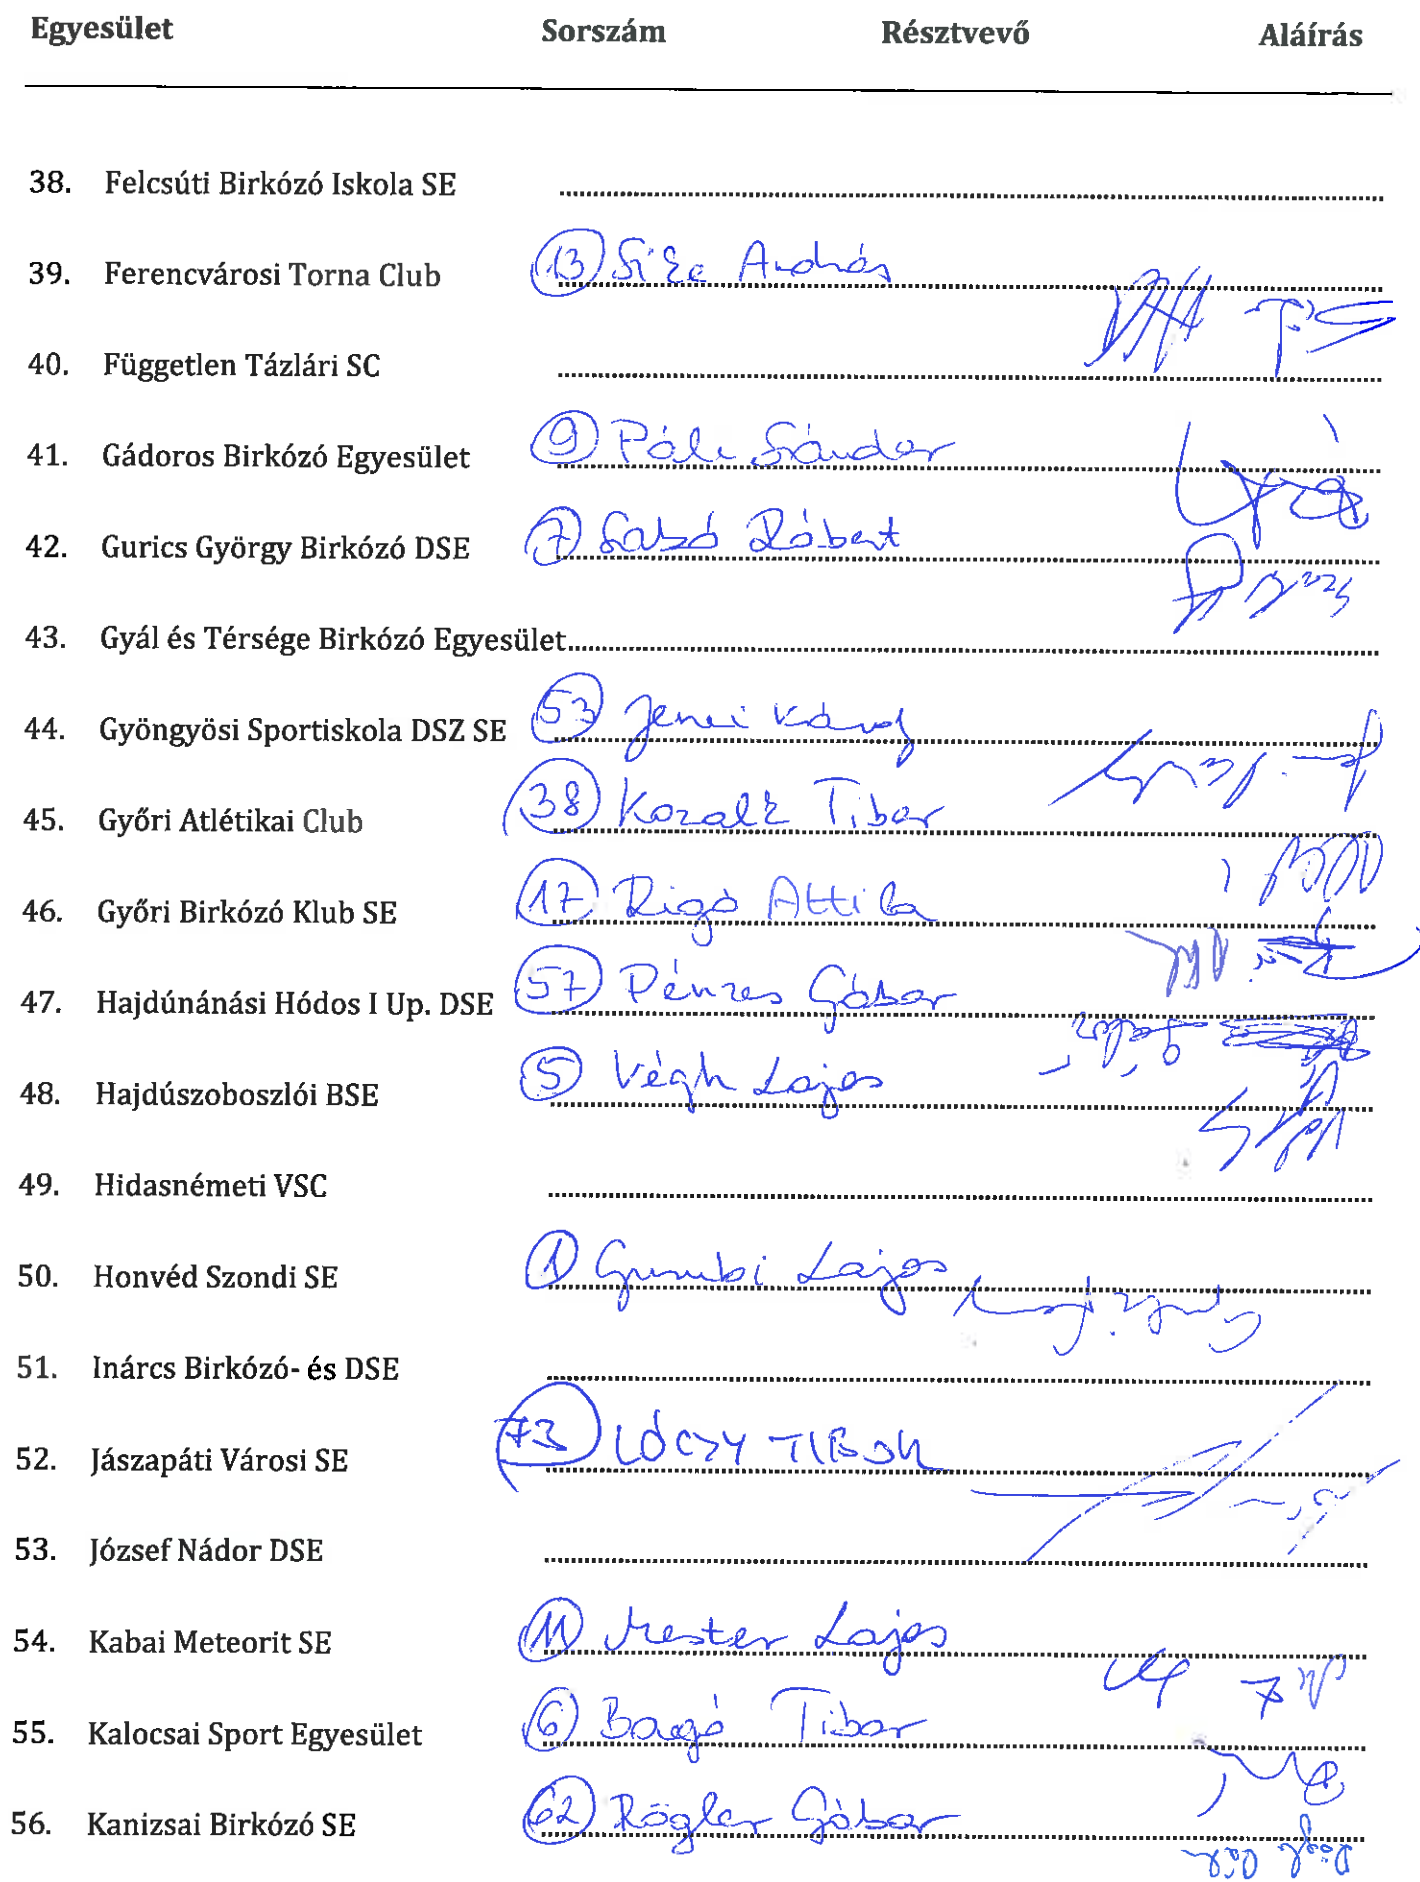 Egyesület Sorszám Résztvevő Aláírás
38. Felcsúti Birkózó Iskola SE
39. Ferencvárosi Torna Club 13 Sike András
40. Független Tázlári SC
41. Gádoros Birkózó Egyesület 9 Páli Sándor
42. Gurics György Birkózó DSE 7 Szabó Róbert
43. Gyál és Térsége Birkózó Egyesület
44. Gyöngyösi Sportiskola DSZ SE 53 Jenei
45. Győri Atlétikai Club 38 Kozalk Tibor
46. Győri Birkózó Klub SE 17 Rigó Attila
47. Hajdúnánási Hódos I Up. DSE 57 Pénzes Gábor
48. Hajdúszoboszlói BSE 5 Végh Lajos
49. Hidasnémeti VSC
50. Honvéd Szondi SE 1 Gumbi Lajos
51. Inárcs Birkózó- és DSE
52. Jászapáti Városi SE 73 LÓCZY TIBOR
53. József Nádor DSE
54. Kabai Meteorit SE 11 Mester Lajos
55. Kalocsai Sport Egyesület 6 Bagó Tibor
56. Kanizsai Birkózó SE 62 Rögler Gábor